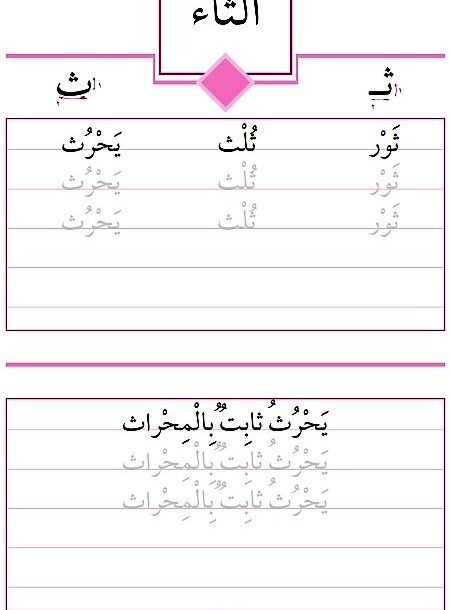 الثاء
ثـ ث
ثَوْر ثُلْث يَحْرُث
ثَوْر ثُلْث يَحْرُث
ثَوْر ثُلْث يَحْرُث
يَحْرُثُ ثابِتٌ بِالْمِحْراث
يَحْرُثُ ثابِتٌ بِالْمِحْراث
يَحْرُثُ ثابِتٌ بِالْمِحْراث